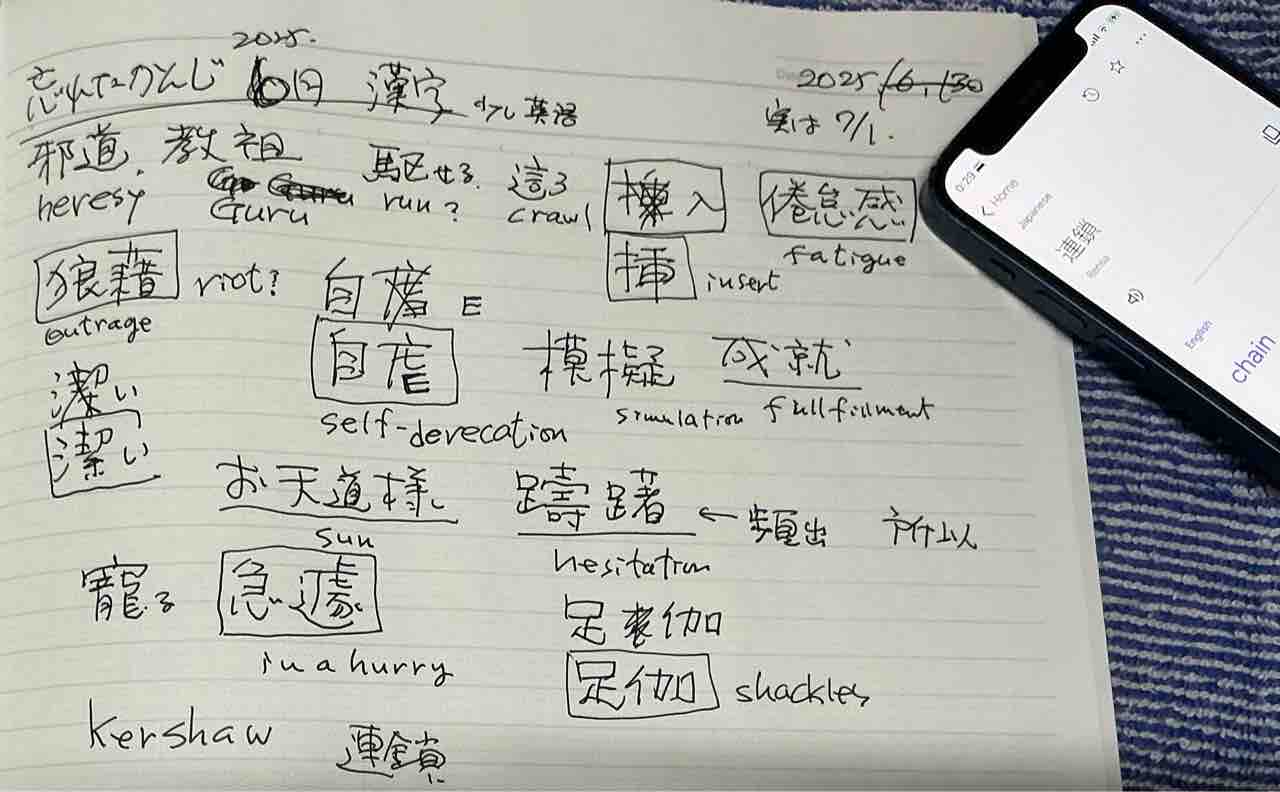 2025.
忘れたかんじ 6月 漢字 少し英語
2025/6/30
実は7/1.
邪道. 教祖 駆せる. 這う 挿入 倦怠感
heresy Guru run? crawl fatigue
挿 insert
狼藉 riot? 自虐
outrage
自虐 模擬 成就
潔い self-derecation simulation fullfillment
潔い
お天道様 躊躇 ← 頻出
sun hesitation
寵る 急遽 足枷
in a hurry 足枷 shackles
kershaw 連鎖
0:29
Home
Japanese
連鎖
Rensa
English
chain